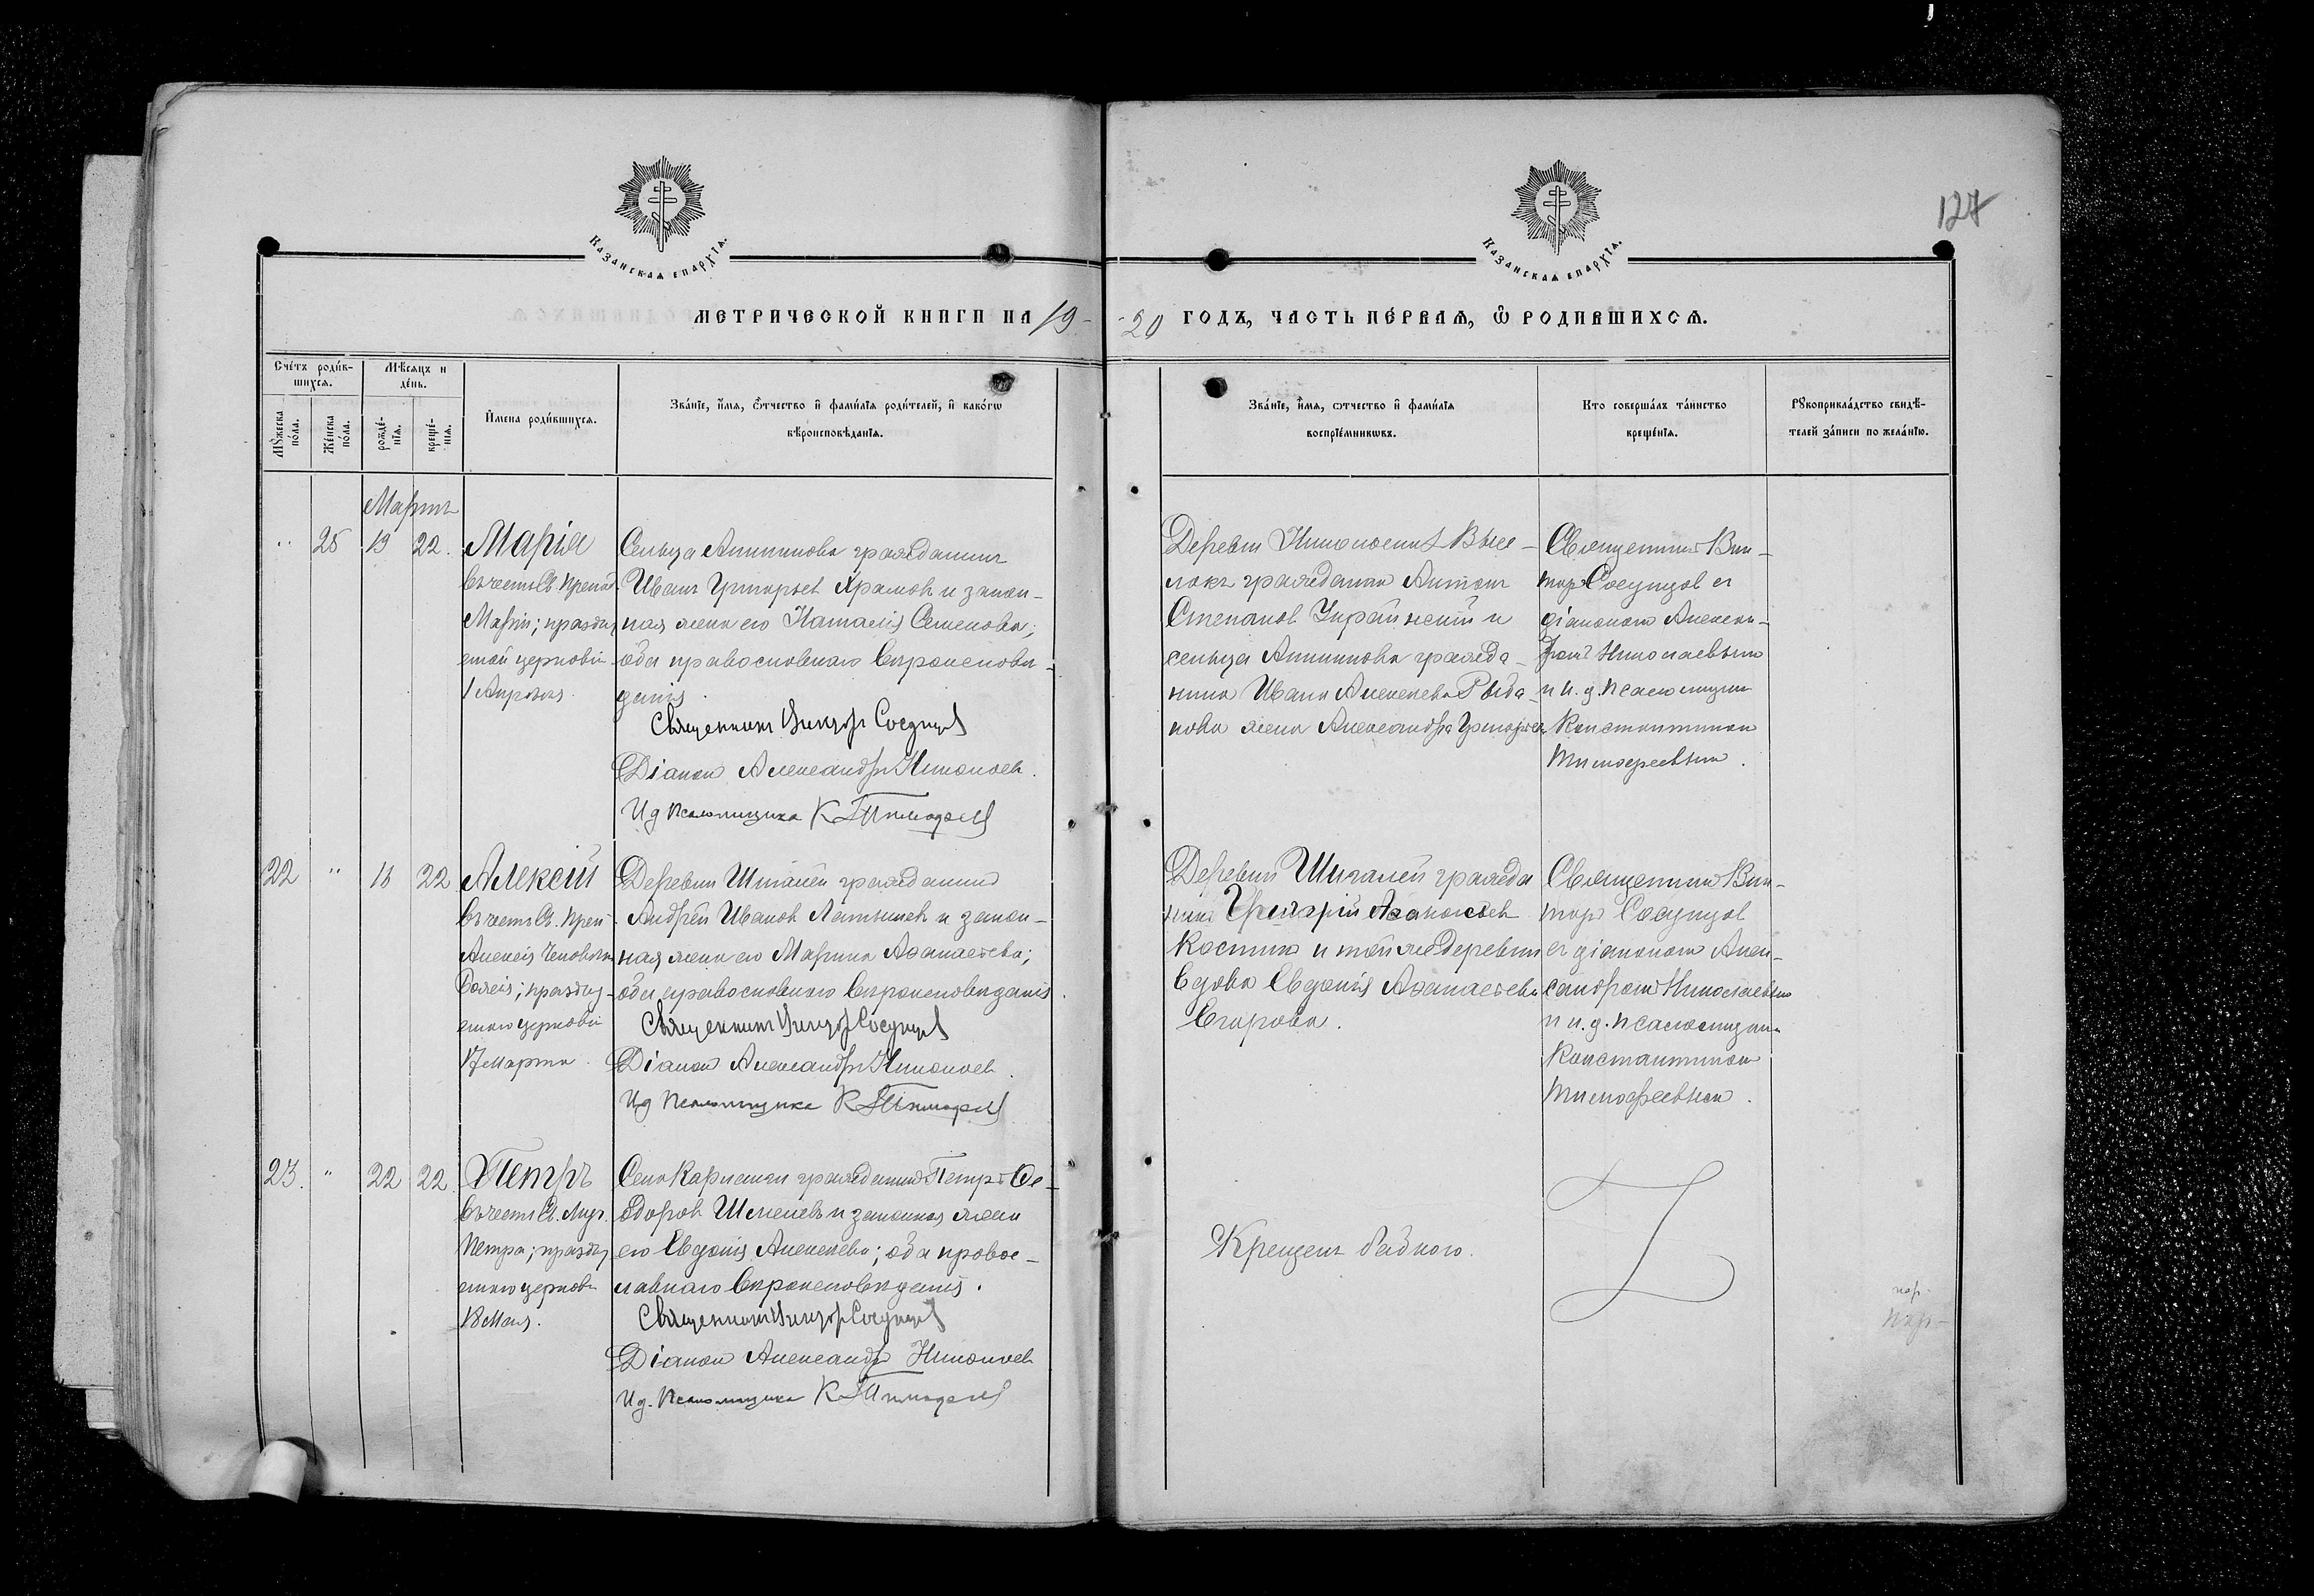 127
Казанская епархїѧ.
Казанская епархїѧ.
Метрической книги на 19-
-20 годъ, часть пе́рваѧ, ѿ родившихсѧ.
Сче́тъ роди́в-
шихсѧ.
Мꙋ́жеска
по́ла.
Же́нска
по́ла.
Мѣ́сяцъ и
де́нь.
рожде́-
нїѧ.
креще́-
нїѧ.
И́мена роди́вшихсѧ.
Зва́нїе, и́мѧ, ѻ́тчество и҆ фами́лїѧ роди́телей, и҆ како́гѡ
вѣроисповѣ́данїѧ.
Зва́нїе, и́мѧ, ѻтчество и҆ фами́лїѧ
воспрїе́мникѡвъ.
Кто соверша́лъ та́инство
креще́нїѧ.
Рꙋкоприкла́дство свидѣ́-
телей за́писи по жела́нїю.
Мартъ
" 25 19 22. Марія
въ честь Св. Препод.
Маріи; празду-
емой церковію
1 Апрѣля.
гражданинъ
Иванъ Григорьев Храмов и закон-
ная жена его Наталія Семенова;
оба православнаго вѣроисповѣ-
данія.
Священникъ Виктор Сосунцов
Діакон Александръ Николаев.
И д Псаломщика К Тимофеев
Граждане Антон
Степанов Украинский и
сельца гражда-
нина Ивана Алексеева
жена Александра Григорьева
Священник Вик-
тор Сосунцов съ
діаконом Алексан-
дром Николаевым
и и. д. псаломщика
Константином
Тимофеевым.
22 " 22 Алексій
въ честь Св. Преп.
Алексія Человѣка
Божія; празду-
емаго церковію
17 Марта.
Деревни Шигалей гражданин
Андрей Иванов Латышев и закон-
ная жена его Марина Аѳанасьева;
оба православнаго вѣроисповѣданія.
Священникъ Виктор Сосунцов
Діакон Александръ Николаев.
И д Псаломщика К Тимофеев
Деревни Шигалей гражда-
нин Григорій Аѳанасьев
Костин и той же деревни
вдова Евдокія Аѳанасьева
Егорова.
Священник Вик-
тор Сосунцов
съ діаконом Алек-
сандром Николаевым
и и. д. псаломщика
Константином
Тимофеевым.
23. " 22 22. Петръ
въ честь Св. Муч.
Петра; празду-
емаго церковію
18 Мая.
Села гражданин Петр Ѳе-
доров и законная жена
его Евдокія Алексеева; оба правос-
лавнаго вѣроисповѣданія.
Священникъ Виктор Сосунцов
Діакон Александръ Николаев
И д. Псаломщика К Тимофеев
Крещенъ бабкою.